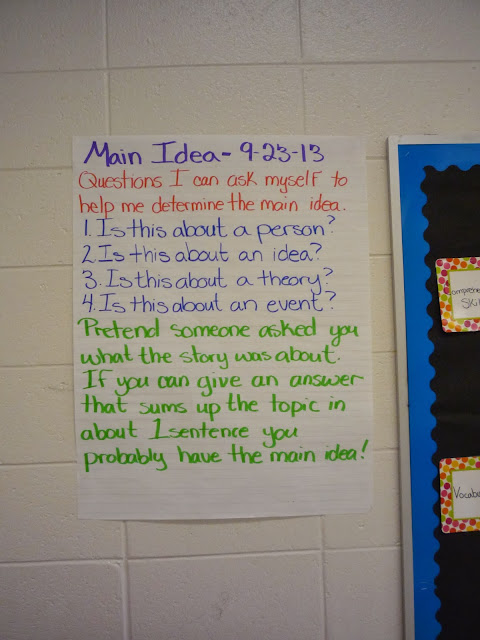 Main Idea- 9-23-13
Questions I can ask myself to
help me determine the main idea.
1. Is this about a person?
2. Is this about an idea?
3. Is this about a theory?
4. Is this about an event?
Pretend someone asked you
what the story was about.
If you can give an answer
that sums up the topic in
about 1 sentence you
probably have the main idea!